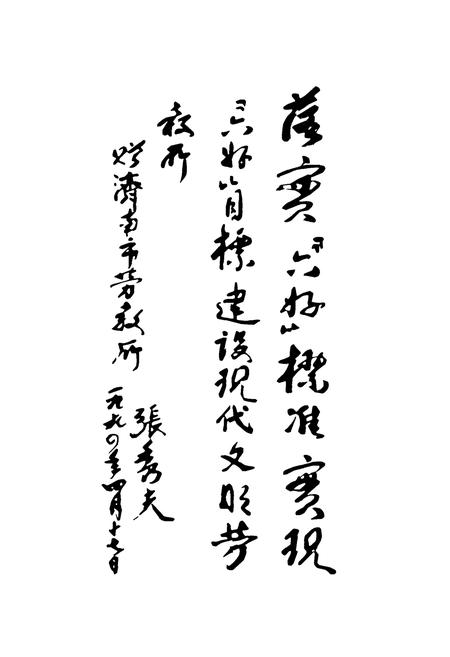 落實『六好』標准實現
『六好』目標建设现代文明劳
教所
赠濟南市劳教所
張秀夫
一九九〇年四月十七日